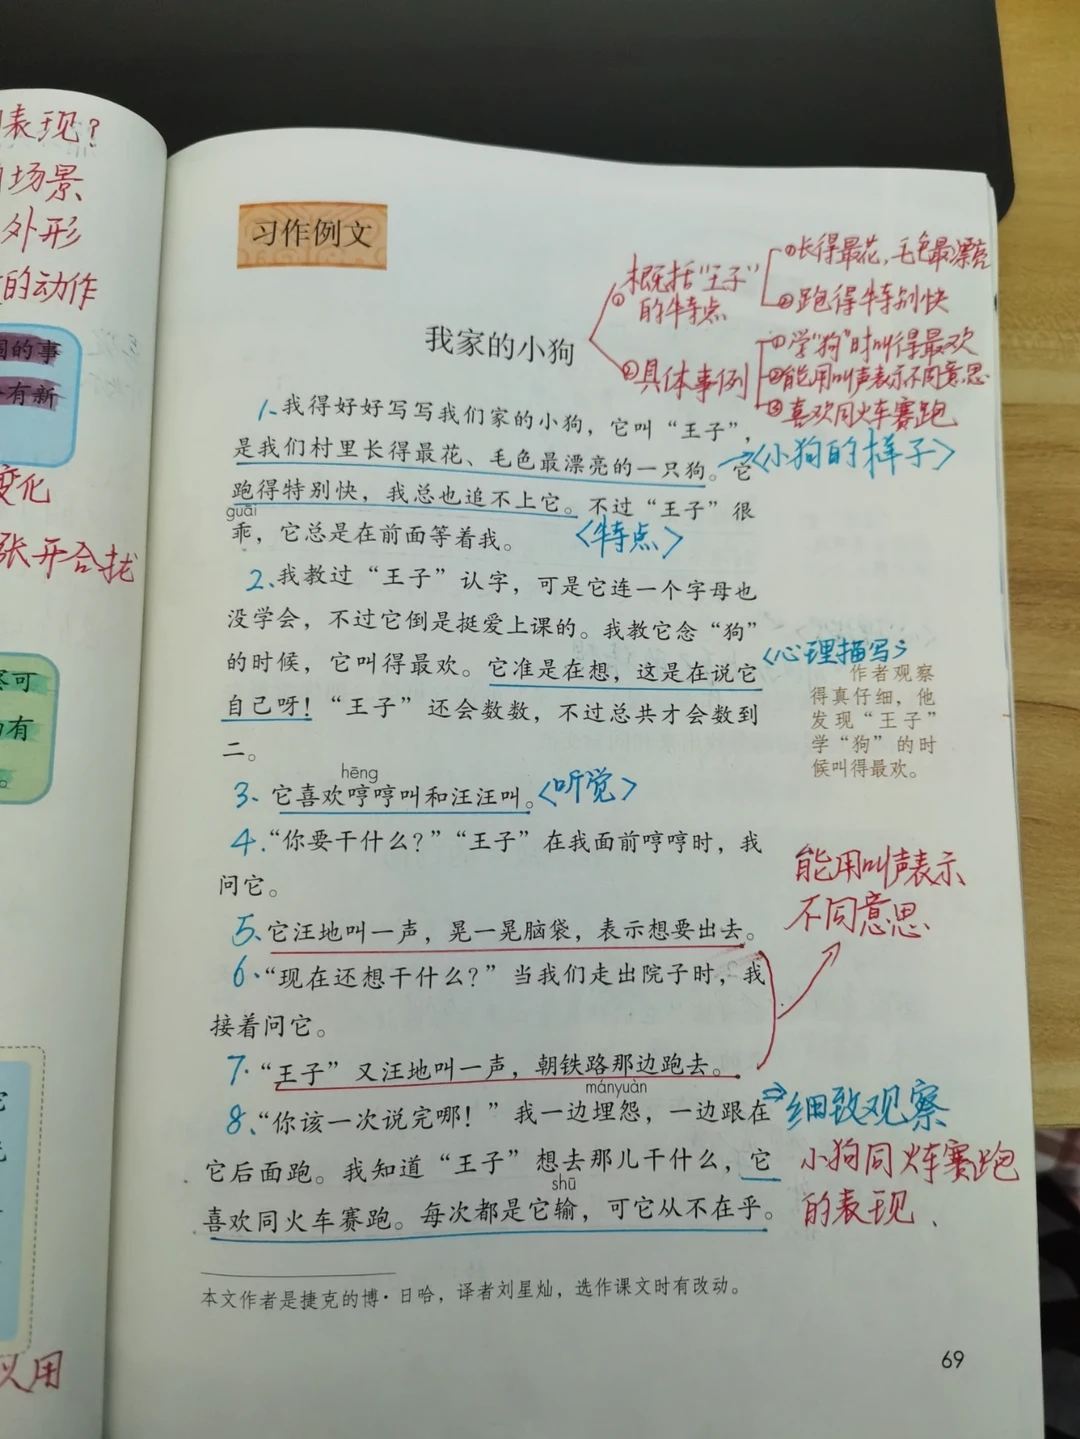 表现?
场景
外形
的动作
的事
有新
变化
张开合拢
可
有
。
用
习作例文
我家的小狗
①概括“王子”
的特点
①长得最花,毛色最漂亮
②跑得特别快
②具体事例
①学“狗”时叫得最欢
②能用叫声表示不同意思
③喜欢同火车赛跑
1、我得好好写写我们家的小狗，它叫“王子”，
是我们村里长得最花、毛色最漂亮的一只狗。它
<小狗的样子>
跑得特别快，我总也追不上它。不过“王子”很
guāi
乖，它总是在前面等着我。
<特点>
2、我教过“王子”认字，可是它连一个字母也
没学会，不过它倒是挺爱上课的。我教它念“狗”
的时候，它叫得最欢。它准是在想，这是在说它
<心理描写>
自己呀！“王子”还会数数，不过总共才会数到
二。
作者观察
得真仔细，他
发现“王子”
学“狗”的时
候叫得最欢。
hēng
3、它喜欢哼哼叫和汪汪叫。
<听觉>
4.“你要干什么？”“王子”在我面前哼哼时，我
问它。
5、它汪地叫一声，晃一晃脑袋，表示想要出去。
6.“现在还想干什么？”当我们走出院子时，我
接着问它。
7.“王子”又汪地叫一声，朝铁路那边跑去。
能用叫声表示
不同意思
mányuàn
8、“你该一次说完哪！”我一边埋怨，一边跟在
它后面跑。我知道“王子”想去那儿干什么，它
shū
喜欢同火车赛跑。每次都是它输，可它从不在乎。
⇒细致观察
小狗同火车赛跑
的表现、
本文作者是捷克的博·日哈，译者刘星灿，选作课文时有改动。
69